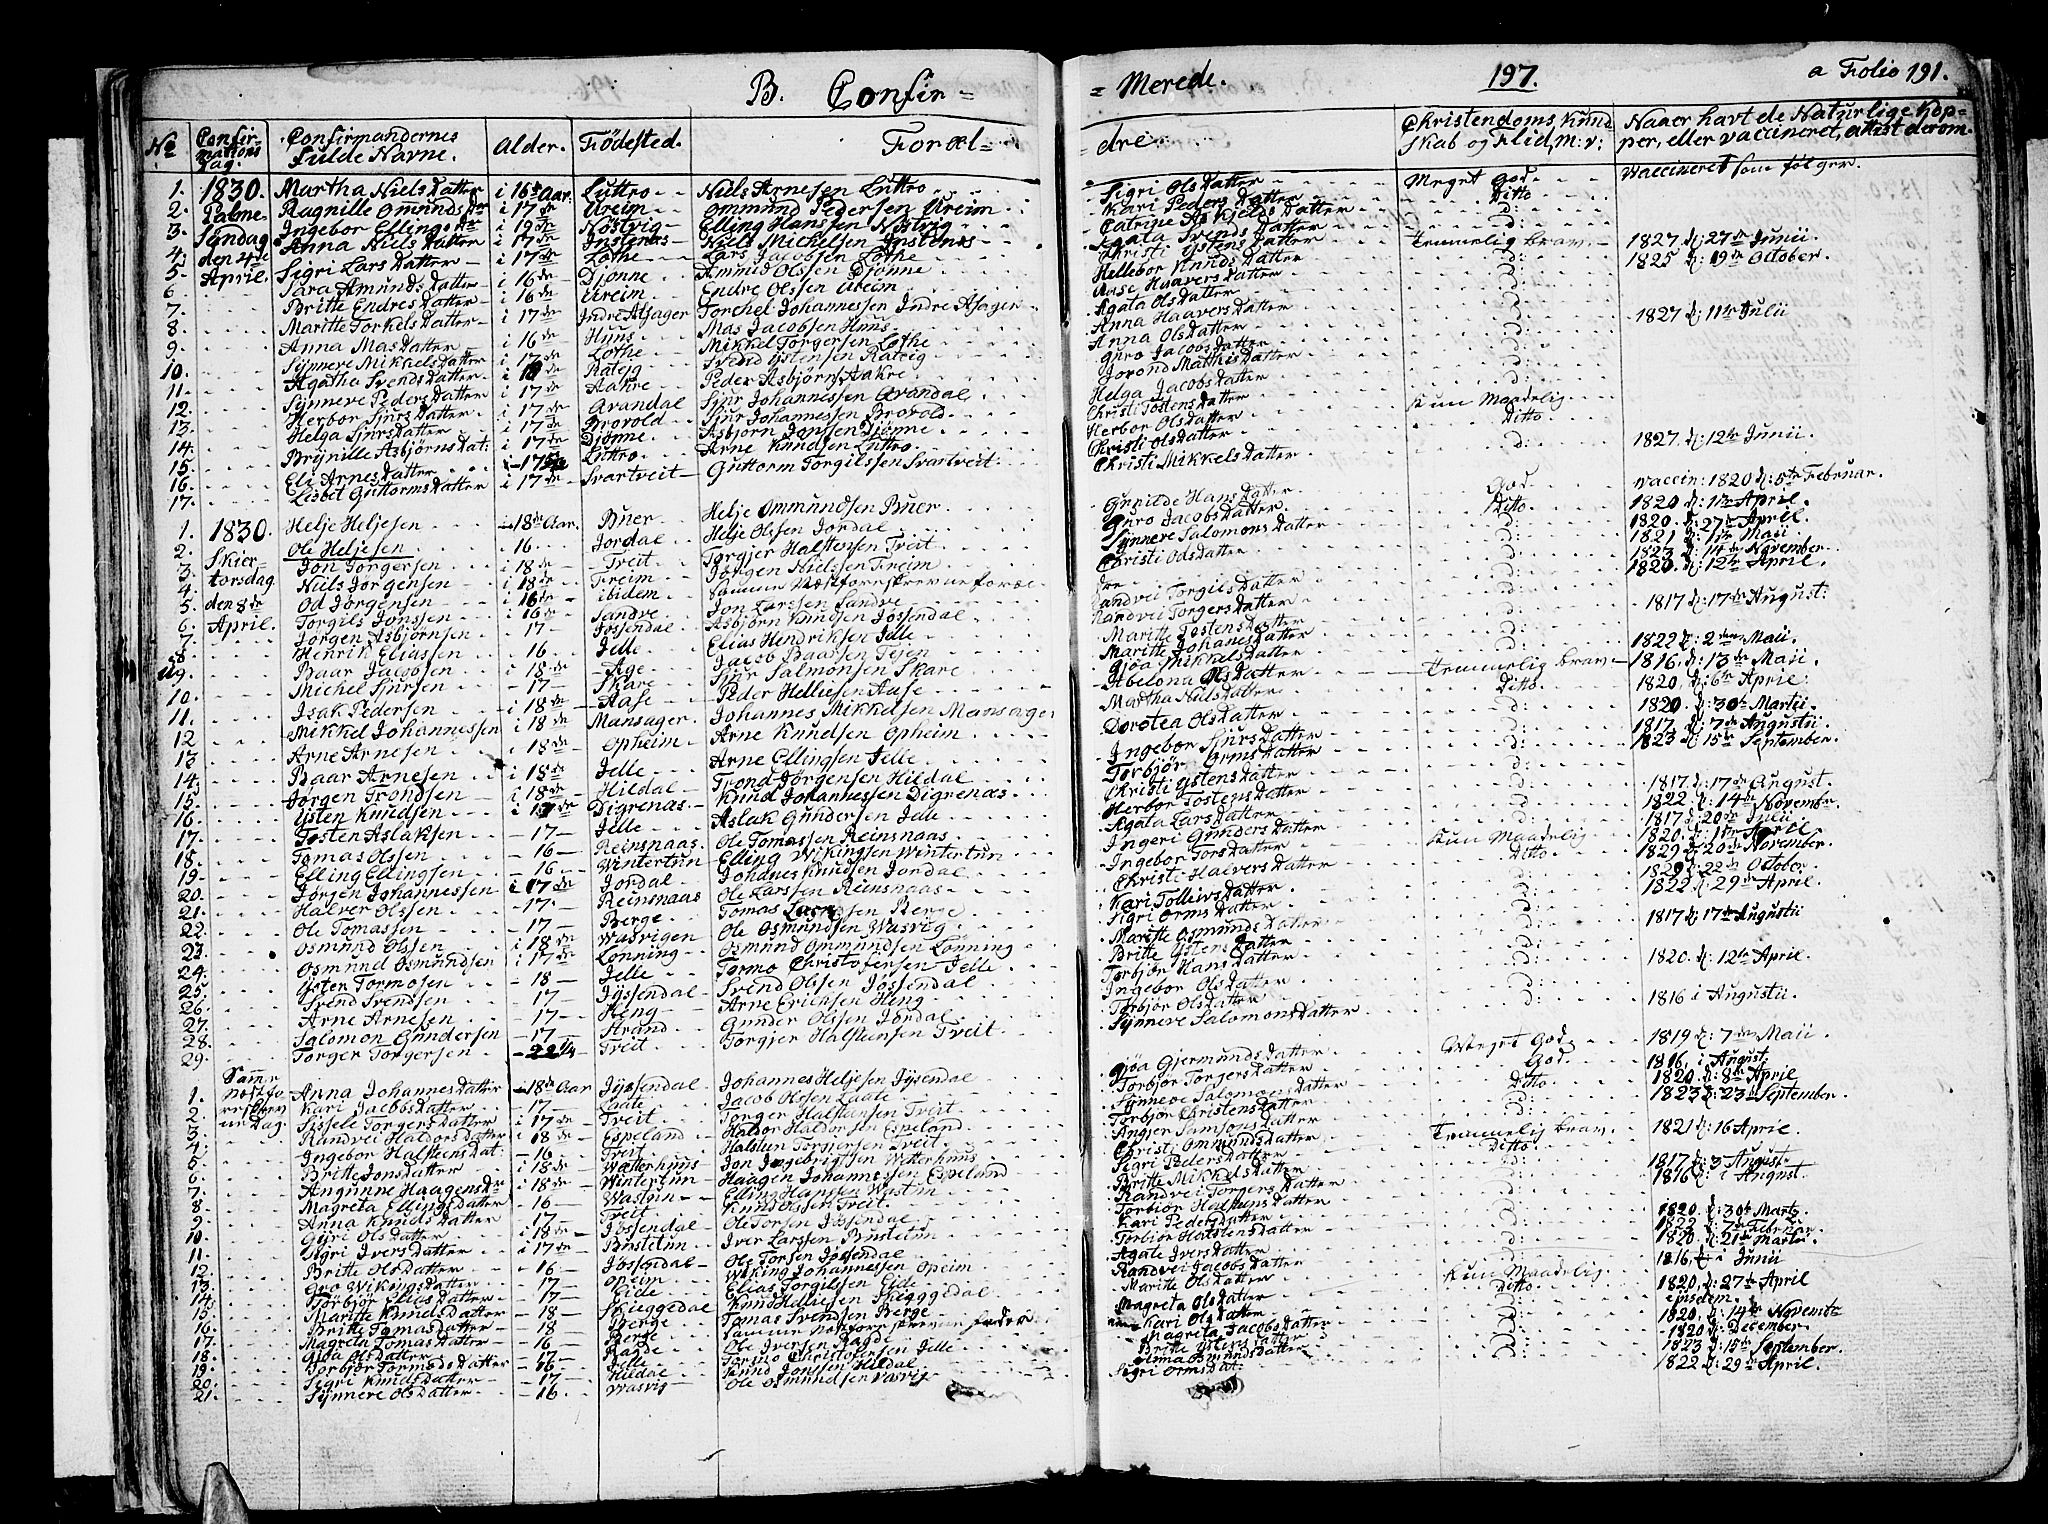 B. Confir=
= Merede.
197.
a Folio 191.
No
Confirmations Dag.
Confirmandernes fulde Navne.
Alder.
Fødested.
Foræl=
dre.
Christendoms Kundskab og Flid, m: v:
Naaer havt de Naturlige Kopper, eller vaccineret, attist derom.
1. 1830. Martha Niels Datter i 16de Aar. Luttro Niels Arnesen Luttro Sigri Ols Datter Meget God Vaccineret som følger.
2. Palme Ragnille Ommunds Dr i 17de Ureim Ommund Pedersen Ureim Kari Peders Datter Ditto
3. Søndag Ingebor Ellings Dr i 19de Nøstvig Elling Hansen Nøstvig Catrine Askjelds Datter d:
4. den 4de Anna Niels Datter i 17de Instenes Niels Michelsen Instenes Agata Svends Datter d:
5. April. Sigri Lars Datter i 17de Lothe Lars Jacobsen Lothe Christi Ystens Datter Temmelig brav 1827. d: 27de Junii
6. Sara Amunds Datter i 16de Djønne Ammund Olssen Djønne Hellebor Knuds Datter d: 1825 d: 19de October.
7. Britte Endres Datter i 16de Ureim Endre Olssen Ureim Aase Haavers Datter d:
8. Maritte Torkels Datter i 17de Indre Alsager Torchel Johannessen Indre Alsager Agata Ols Datter d:
9. Anna Mas Datter i 16de Huus Mas Jacobsen Huus Anna Haavers Datter d: 1827 d: 11te Julii
10. Synneve Mikkels Datter i 17de Lothe Mikkel Torgersen Lothe Anna Ols Datter d:
11. Agatha Svends Datter Rateig Svend Ystensen Rateig Guro Jacobs Datter d:
12. Synneve Peders Datter i 17de Aakre Peder Asbjørns. Aakre Jorond Matthis Datter d:
13. Herbor Sjurs Datter i 17de Arandal Sjur Johannessen Arandal Helga Jacobs Datter d:
14. Helga Sjurs Datter i 17de Brovold Sjur Johannessen Brovold. Christi Tostens Datter Kun Maadelig
15. Brynille Asbjørns Dat: i 17de Djønne Asbjørn Jonssen Djønne Herbor Ols Datter Ditto
16. Eli Arnes Datter Luttro Arne Knudsen Luttro Christi Ols Datter d: 1827. d: 12te Junii.
17. Lisbet Guttorms Datter i 17de Svartveit Guttorm Torgilssen Svartveit Christi Mikkels Datter
1. 1830. Helje Heljesen 18de Aar. Buer Helje Ommundsen Buer Gunilde Hans Datter God vaccin: 1820 d: 5te Februar.
2. Skier Ole Heljesen 16 Jordal Helje Olssen Jordal Guro Jacobs Datter Ditto 1820 d: 1te April.
3. torsdag Jon Torgersen i 18de Treit Torgjer Halstensen Treit Synneve Salomons Datter d: 1820. d: 27de April.
4. den 8de Niels Jørgensen i 18de Freim Jørgen Nielssen Freim Christi Ods Datter d: 1821 d: 1te Maii
5. April. Od Jørgensen i 16de ibidem samme Næstforeskrevne Foræl dre d: 1823 d: 14de November.
6. Torgils Jonssen 16de Sandve Jon Larssen Sandve Randvei Torgils Datter d: 1820. d: 12te April.
7. Jørgen Asbjørnsen 17 Jøssendal Asbjørn Knudsen Jøssendal Randvei Torgers Datter d:
8. Henrik Eliassen 16. Jelle Elias Hendriksen Jelle Maritte Tostens Datter d: 1817 d: 17de August:
9. Baar Jacobsen i 18de Age Jacob Baarsen Tejen Maritte Johanes Datter d:
10. Michel Sjursen 17 Skare Sjur Salmonsen Skare Gjøa Mikkels Datter d: 1822 d: 2den Maii.
11. Isak Pedersen i 18de Aase Peder Helliesen Aase Abelona Ols Datter Temmelig brav 1816. d: 13de Maii
12 Mikkel Johannessen i 18de Mansager Johannes Mikkelsen Mansager Martha Niels Datter Ditto 1820, d: 6te April:
13. Arne Arnesen i 18de Opheim Arne Knudsen Opheim Dorotea Ols Datter d: 1820. d: 30te Martii.
14. Baar Arnesen i 18de Jelle Arne Ellingsen Jelle Ingebor Sjurs Datter d: 1817. d: 7de Augustii.
15. Jørgen Trondsen i 18de Hildal Trond Jørgensen Hildal Torbjør Orms Datter d: 1823 d: 15de September.
16. Ysten Knudsen i 17de Digrenæs Knud Johannessen Digrenæs Christi Ystens Datter d:
17. Tosten Aslaksen 17 Jelle Aslak Gundersen Jelle Herbor Tostens Datter d: 1817. d: 17de August
18. Tomas Olssen 16 Reinsnaas Ole Tomassen Reinsnaas Agata Lars Datter d: 1822. d: 14de Novembr.
19. Elling Ellingsen 16 Wintertun Elling Wikingsen Wintertun Ingeri Gunders Datter Kun Maadelig 1817 d: 20de Julii
20. Jørgen Johannessen i 17de Jordal Johanes Knudsen Jordal Ingebor Tors Datter Ditto 1820. d: 1te April.
21. Halver Olssen 17. Reinsnaas Ole Larssen Reinsnaas Christi Halvers Datter d: 1829 d: 20de November.
22. Ole Tomassen 17 Berge Tomas Larssen Berge Kari Tollivs Datter d: 1829 d: 22de October
23. Osmund Olssen i 18de Wasvigen Ole Osmundsen Wasvig Sigri Orms Datter d: 1822 d: 29de April.
24. Osmund Osmundsen i 17de Lønning Osmund Ommundsen Lønning Maritte Osmunds Datter d: 1817 d: 17de Augustii
25. Ysten Tormosen 18 Jelle Tormo Christofersen Jelle Britte Ystens Datter d:
26. Svend Svendsen 17 Jyssendal Svend Olssen Jøssendal Torbjør Hans Datter d: 1820. d: 12te April.
27. Arne Arnesen 17 Heng Arne Ericksen Heng Ingebor Ols Datter d:
28. Salomon Gundersen 17 Strand Gunder Olssen Jordal Torbjør Ols Datter d: 1816 i Augustii.
29. Torger Torgersen 22 1/4 Treit Torgjer Halsteinsen Treit Synneve Salomons Datter
Samme næstforeskrevne Dag.
1. Anna Johanes Datter 18de Aar Jyssendal Johannes Heljesen Jyssendal Gjøa Gjermunds Datter Meget God 1819 d: 7de Maii
2. Kari Jacobs Datter 17 Laate Jacob Olssen Laate Torbjør Torgers Datter God 1816, i August
3. Sissele Torgers Datter i 17de Treit Torger Halstensen Treit Synneve Salomons Datter Ditto 1820 d: 8de April
4. Randvei Haldors Datter i 18de Espeland Haldor Haldorsen Espeland. Torbjør Christens Datter d: 1823 d: 23de September.
5. Ingebor Halsteens Dat: 16 Treit Halsten Torgjersen Treit Angjer Samsons Datter d:
6. Britte Jons Datter i 18de Watterhuus Jon Ingebrigtsen Watterhuus Christi Ommunds Datter Temmelig brav 1821 d: 16 April.
7. Angunne Haagens Dr i 18de Wintertun Haagen Johannessen Espeland Sigri Peders Datter Ditto
8. Magreta Ellings Datter 16 Wastun Elling Hansen Wastun Britte Mikkels Datter d: 1817. d: 3 August.
9. Anna Knuds Datter 17 Treit Knud Olssen Treit Randvei Torgers Datter d: 1816 i August.
10. Guri Ols Datter i 18de Jøssendal Ole Torsen Jøssendal Torbjør Halstens Datter d:
11. Sigri Ivers Datter i 17de Bustetun Iver Larssen Bustetun Kari Peders Datter d: 1820. d: 30te Marts.
12. Britte Ols Datter 16 Jøssendal Ole Torsen Jøssendal Torbjør Halstens Datter d: 1822 d: 7de Februar.
13. Gva Wikings Datter 17 Opeim Wiking Johannessen Opeim Agate Ivers Datter d: 1820. d: 21de Martii
14. Torbjør Elias Datter 17 Eide Elias Torgilssen Eide Randvei Jacobs Datter Kun Maadelig 1816, i Junii
15. Maritte Knuds Datter 18 Skieggedal Knud Helliesen Skieggedal Maritte Ols Datter Ditto 1820, d: 27de April
16. Britte Tomas Datter 18 Berge Tomas Svendsen Berge Magreta Ols Datter d: ejusdem.
17. Magreta Tomas Datter 16 Berge samme næstforeskrevne Fader Kari Ols Datter d: 1820, d: 14de Novembr
18. Gjøa Ols Datter 17 Ragde Ole Iversen Ragde Magreta Jacobs Datter d: 1820 d: December.
19. Torbjør Tormods Datter 16 Jelle Tormo Christofersen Jelle Britte Ystens Datter d: 1823 d: 15de September.
20. Sigri Knuds Datter 17 Hildal Knud Jonssen Hildal Anna Omunds Datter d: 1822 d: 29de April.
21. Synneve Ols Datter 16 Wasvig Ole Osmundsen Wasvig Sigri Orms Dat: